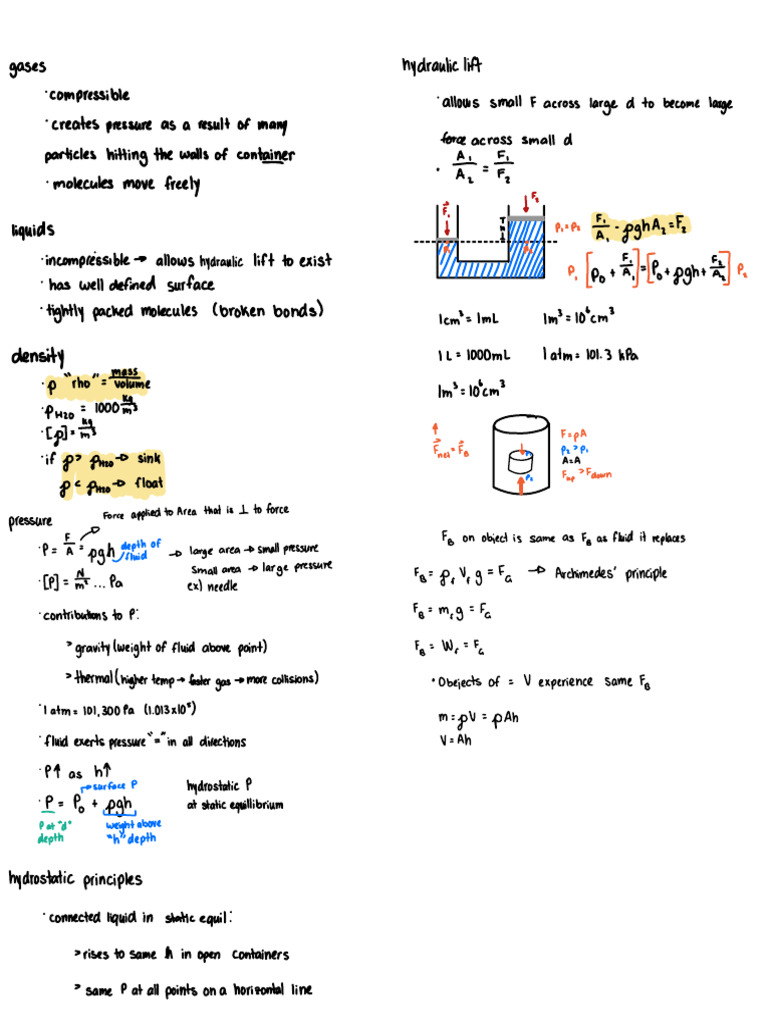 gases
· compressible
· creates pressure as a result of many
particles hitting the walls of container
· molecules move freely
liquids
· incompressible → allows hydraulic lift to exist
· has well defined surface
· tightly packed molecules (broken bonds)
density
· ρ "rho" = mass/volume
· ρH2O = 1000 kg/m³
· [ρ] = kg/m³
· if ρ > ρH2O → sink
ρ < ρH2O → float
pressure
Force applied to Area that is ⊥ to force
· P = F/A = ρgh depth of fluid
→ large area → small pressure
small area → large pressure
ex) needle
· [P] = N/m² ... Pa
· contributions to P:
> gravity (weight of fluid above point)
> thermal (higher temp → faster gas → more collisions)
· 1 atm = 101,300 Pa (1.013x10⁵)
· fluid exerts pressure "=" in all directions
· P↑ as h↑
surface P
· P = P₀ + ρgh
P at "d" depth
weight above "h" depth
hydrostatic P
at static equillibrium
hydrostatic principles
· connected liquid in static equil:
> rises to same h in open containers
> same P at all points on a horizontal line
hydraulic lift
· allows small F across large d to become large
force across small d
· A₁/A₂ = F₁/F₂
F₁
F₂
h
P₁ = P₂
F₁/A₁ - ρghA₂ = F₂
P₁ [P₀ + F₁/A₁] = [P₀ + ρgh + F₂/A₂] P₂
1cm³ = 1mL 1m³ = 10⁶cm³
1L = 1000mL 1 atm = 101.3 kPa
1m³ = 10⁶cm³
F⃗net = F⃗B
P₂
F = ρA
P₂ > P₁
A = A
Fup > Fdown
FB on object is same as FB as fluid it replaces
FB = ρf Vf g = FG → Archimedes' principle
FB = mf g = FG
FB = Wf = FG
· Obejects of = V experience same FB
m = ρV = ρAh
V = Ah